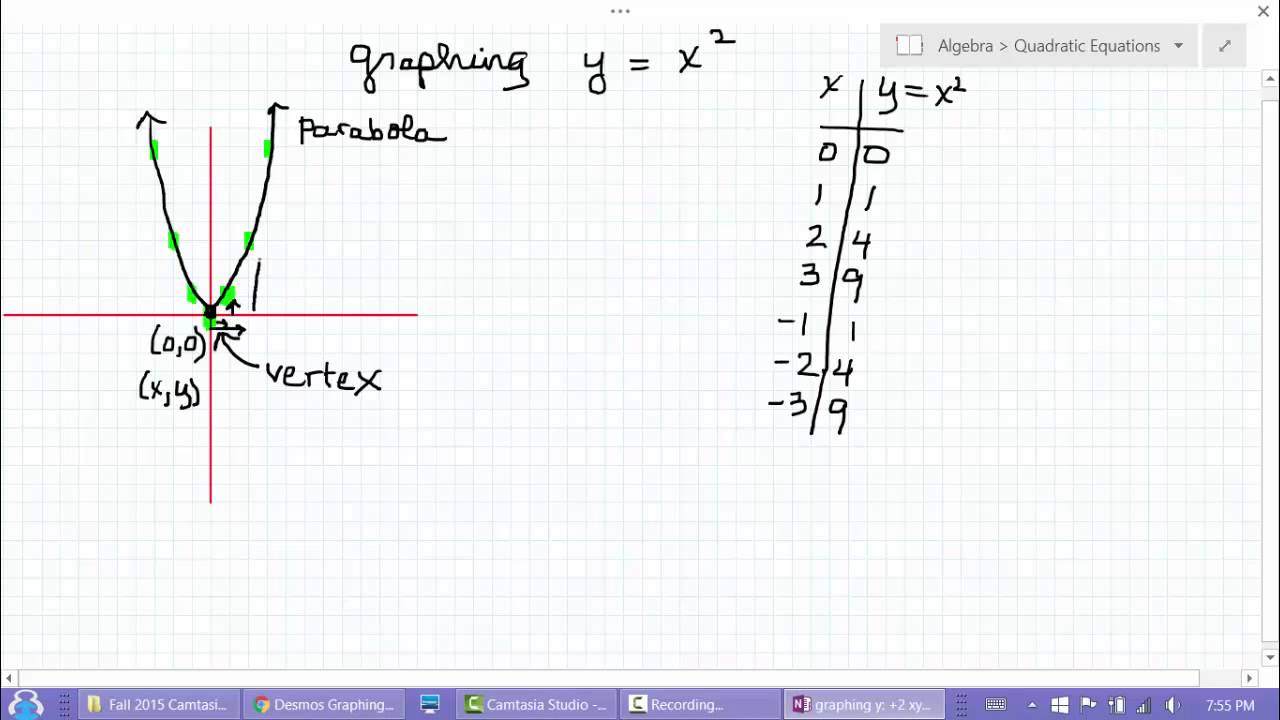 graphing y = x²
Algebra > Quadratic Equations
Parabola
x y = x²
0 0
1 1
2 4
3 9
-1 1
-2 4
-3 9
(0,0)
(x,y)
vertex
Fall 2015 Camtasi...
Desmos Graphing...
Camtasia Studio -...
Recording...
graphing y; +2 xy...
7:55 PM